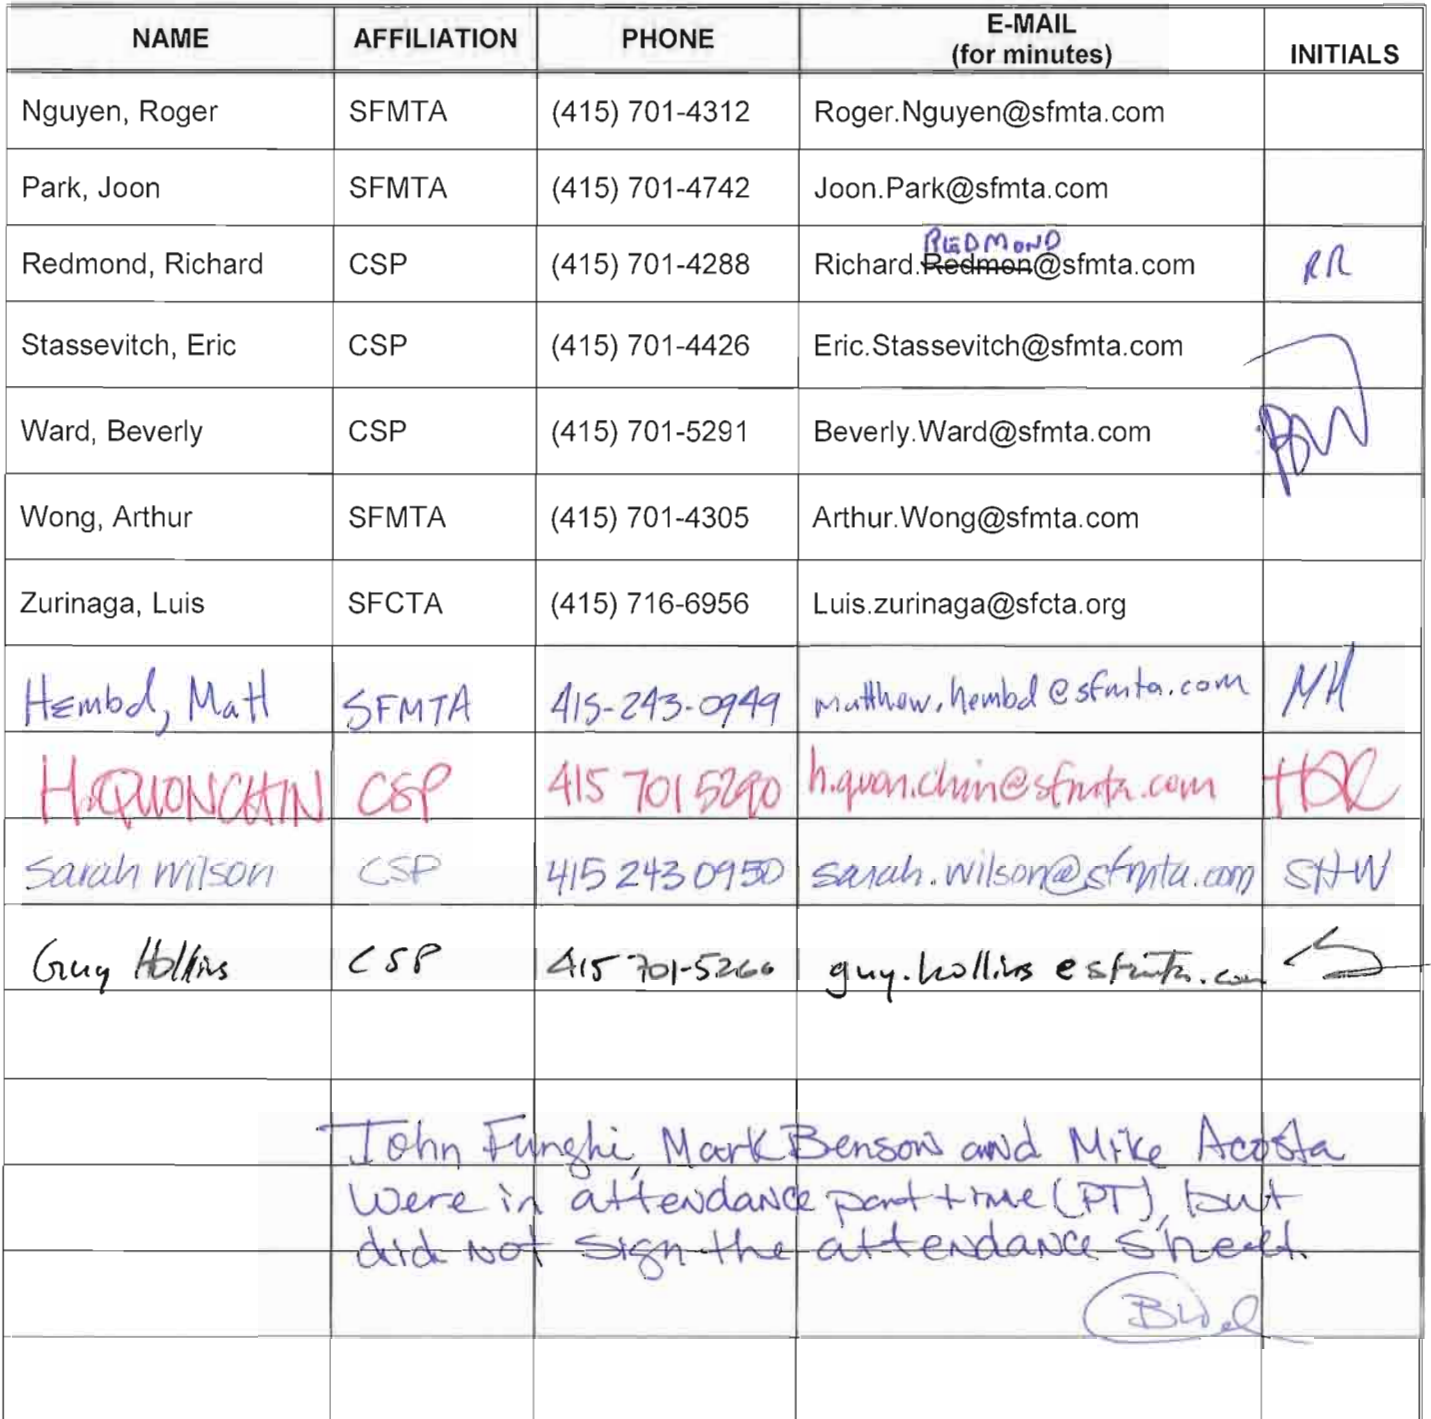 NAME AFFILIATION PHONE E-MAIL (for minutes) INITIALS
Nguyen, Roger SFMTA (415) 701-4312 Roger.Nguyen@sfmta.com
Park, Joon SFMTA (415) 701-4742 Joon.Park@sfmta.com
REDMOND
Redmond, Richard CSP (415) 701-4288 Richard.Redmon@sfmta.com RR
Stassevitch, Eric CSP (415) 701-4426 Eric.Stassevitch@sfmta.com
Ward, Beverly CSP (415) 701-5291 Beverly.Ward@sfmta.com BW
Wong, Arthur SFMTA (415) 701-4305 Arthur.Wong@sfmta.com
Zurinaga, Luis SFCTA (415) 716-6956 Luis.zurinaga@sfcta.org
Hembd, Matt SFMTA 415-243-0949 matthew.hembd@sfmta.com MH
H.QUONCHIN CSP 415 701 5290 h.quon.chin@sfmta.com HQC
Sarah Wilson CSP 415 243 0950 sarah.wilson@sfmta.com SHW
Guy Hollins CSP 415 701-5266 guy.hollins@sfmta.com
John Funghi, Mark Benson and Mike Acosta
were in attendance part time (PT), but
did not sign the attendance sheet.